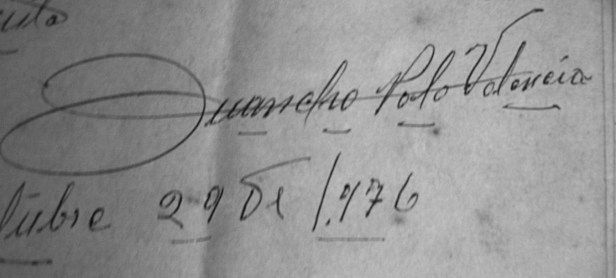 Juancho Polo Valencia
tubre 29 De 1.976